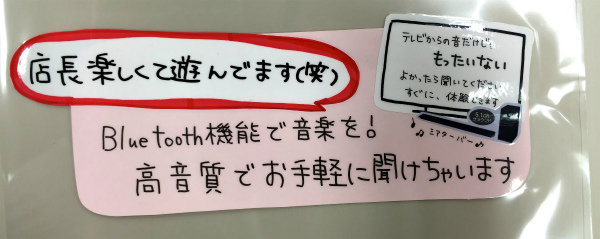 店長楽しくて遊んでます(笑)
テレビからの音だけじゃ
もったいない
よかったら聞いてください
すぐに、体験できます
シアターバー
Bluetooth機能で音楽を!
高音質でお手軽に聞けちゃいます